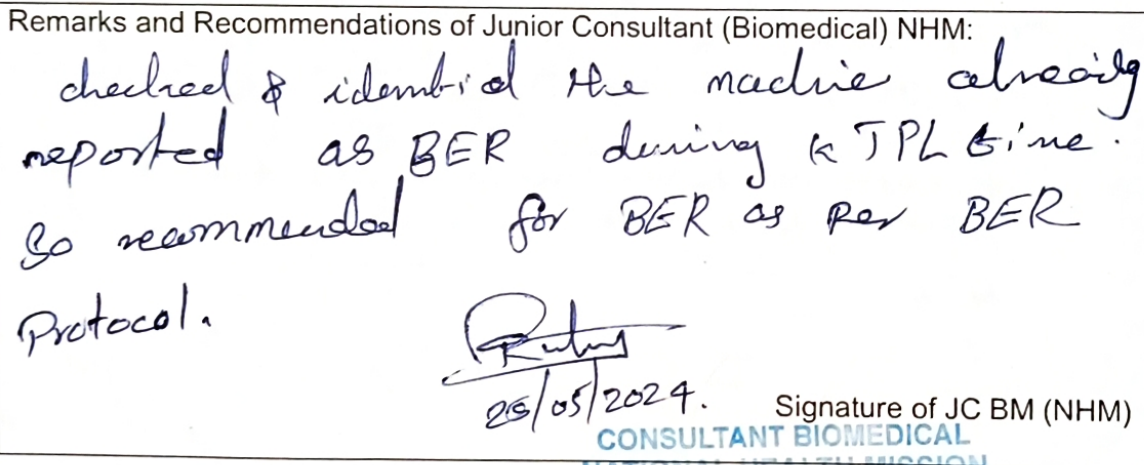 Remarks and Recommendations of Junior Consultant (Biomedical) NHM:
checked & identi-d the machie already
reported as BER during KTPL time.
So recommended for BER as per BER
Protocol.
/05/2024.
Signature of JC BM (NHM)
CONSULTANT BIOMEDICAL
NATIONAL HEALTH MISSION